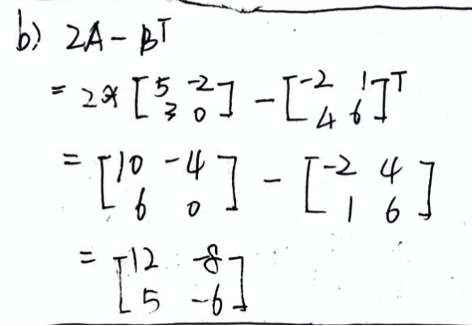 b) 2A - Bᵀ
= 2* [5 -2; 3 0] - [-2 1; 4 6]ᵀ
= [10 -4; 6 0] - [-2 4; 1 6]
= [12 -8; 5 -6]